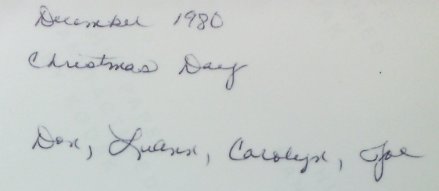 December 1980
Christmas Day
Don, Luann, Carolyn, Joe